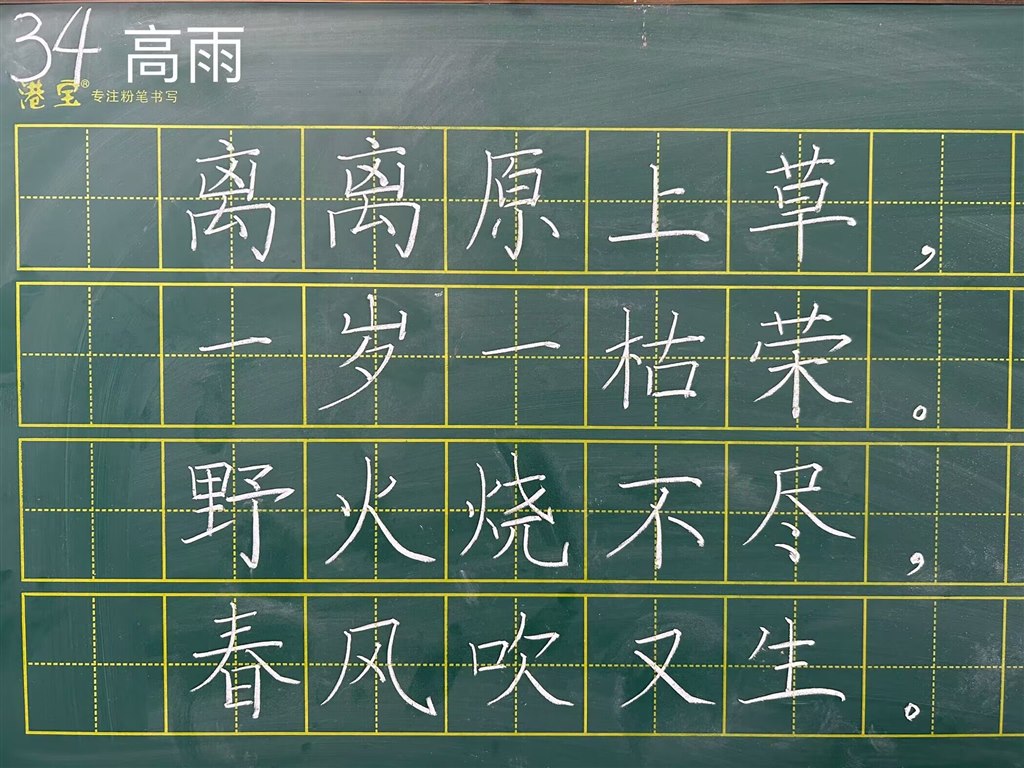 34 高雨
港宝® 专注粉笔书写
离离原上草，
一岁一枯荣。
野火烧不尽，
春风吹又生。